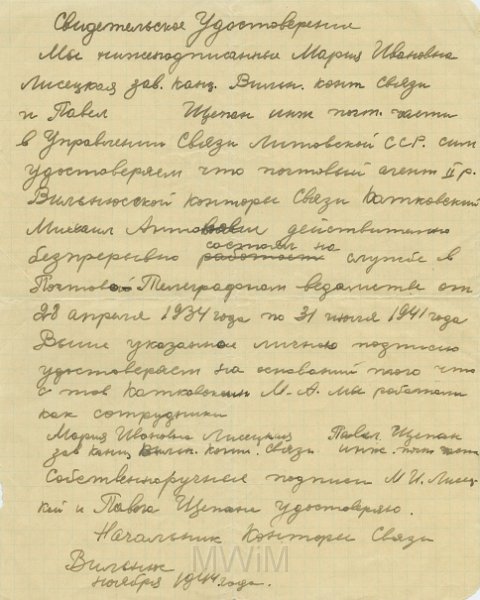 Свидетельское Удостоверение
Мы нижеподписанные Мария Ивановна
Лисецкая зав. канц. Вильн. конт связи
и Павел Щепан инж почт. части
в Управлении Связи Литовской ССР. сим
удостоверяем что почтовый агент II р.
Вильнюсской конторы Связи Катковский
Михаил действительно
состоял на
безпрерывно работает службе в
Почтовой Телеграфном ведомстве от
28 апреля 1934 года по 31 июля 1941 года
Выше указанное лично подписью
удостоверяем на оснований того что
с тов Катковским М.А. мы работали
как сотрудники
Мария Ивановна Лисецкая Павел. Щепан
зав канц Вильн. конт. связи инж. почт части
Собственноручные подписи М.И. Лисец-
кой и Павла Щепана удостоверяю.
Начальник Конторы Связи
Вильнюс
ноября 1944 года.
MWiM